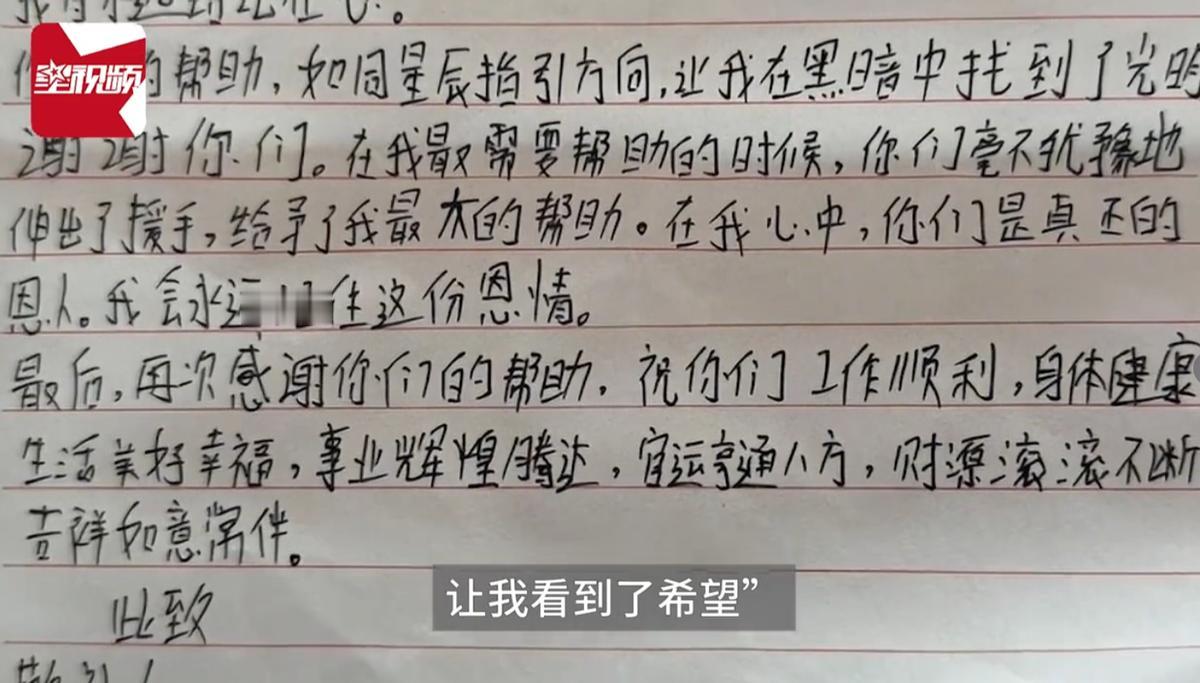 星视频
的帮助,如同星辰指引方向,让我在黑暗中找到了光明
谢谢你们。在我最需要帮助的时候,你们毫不犹豫地
伸出了援手,给予了我最大的帮助。在我心中,你们是真正的
恩人。我会永远住这份恩情。
最后,再次感谢你们的帮助.祝你们工作顺利,身体健康
生活美好幸福,事业辉煌腾达,官运亨通八方,财源滚滚不断
吉祥如意常伴。
此致
让我看到了希望”